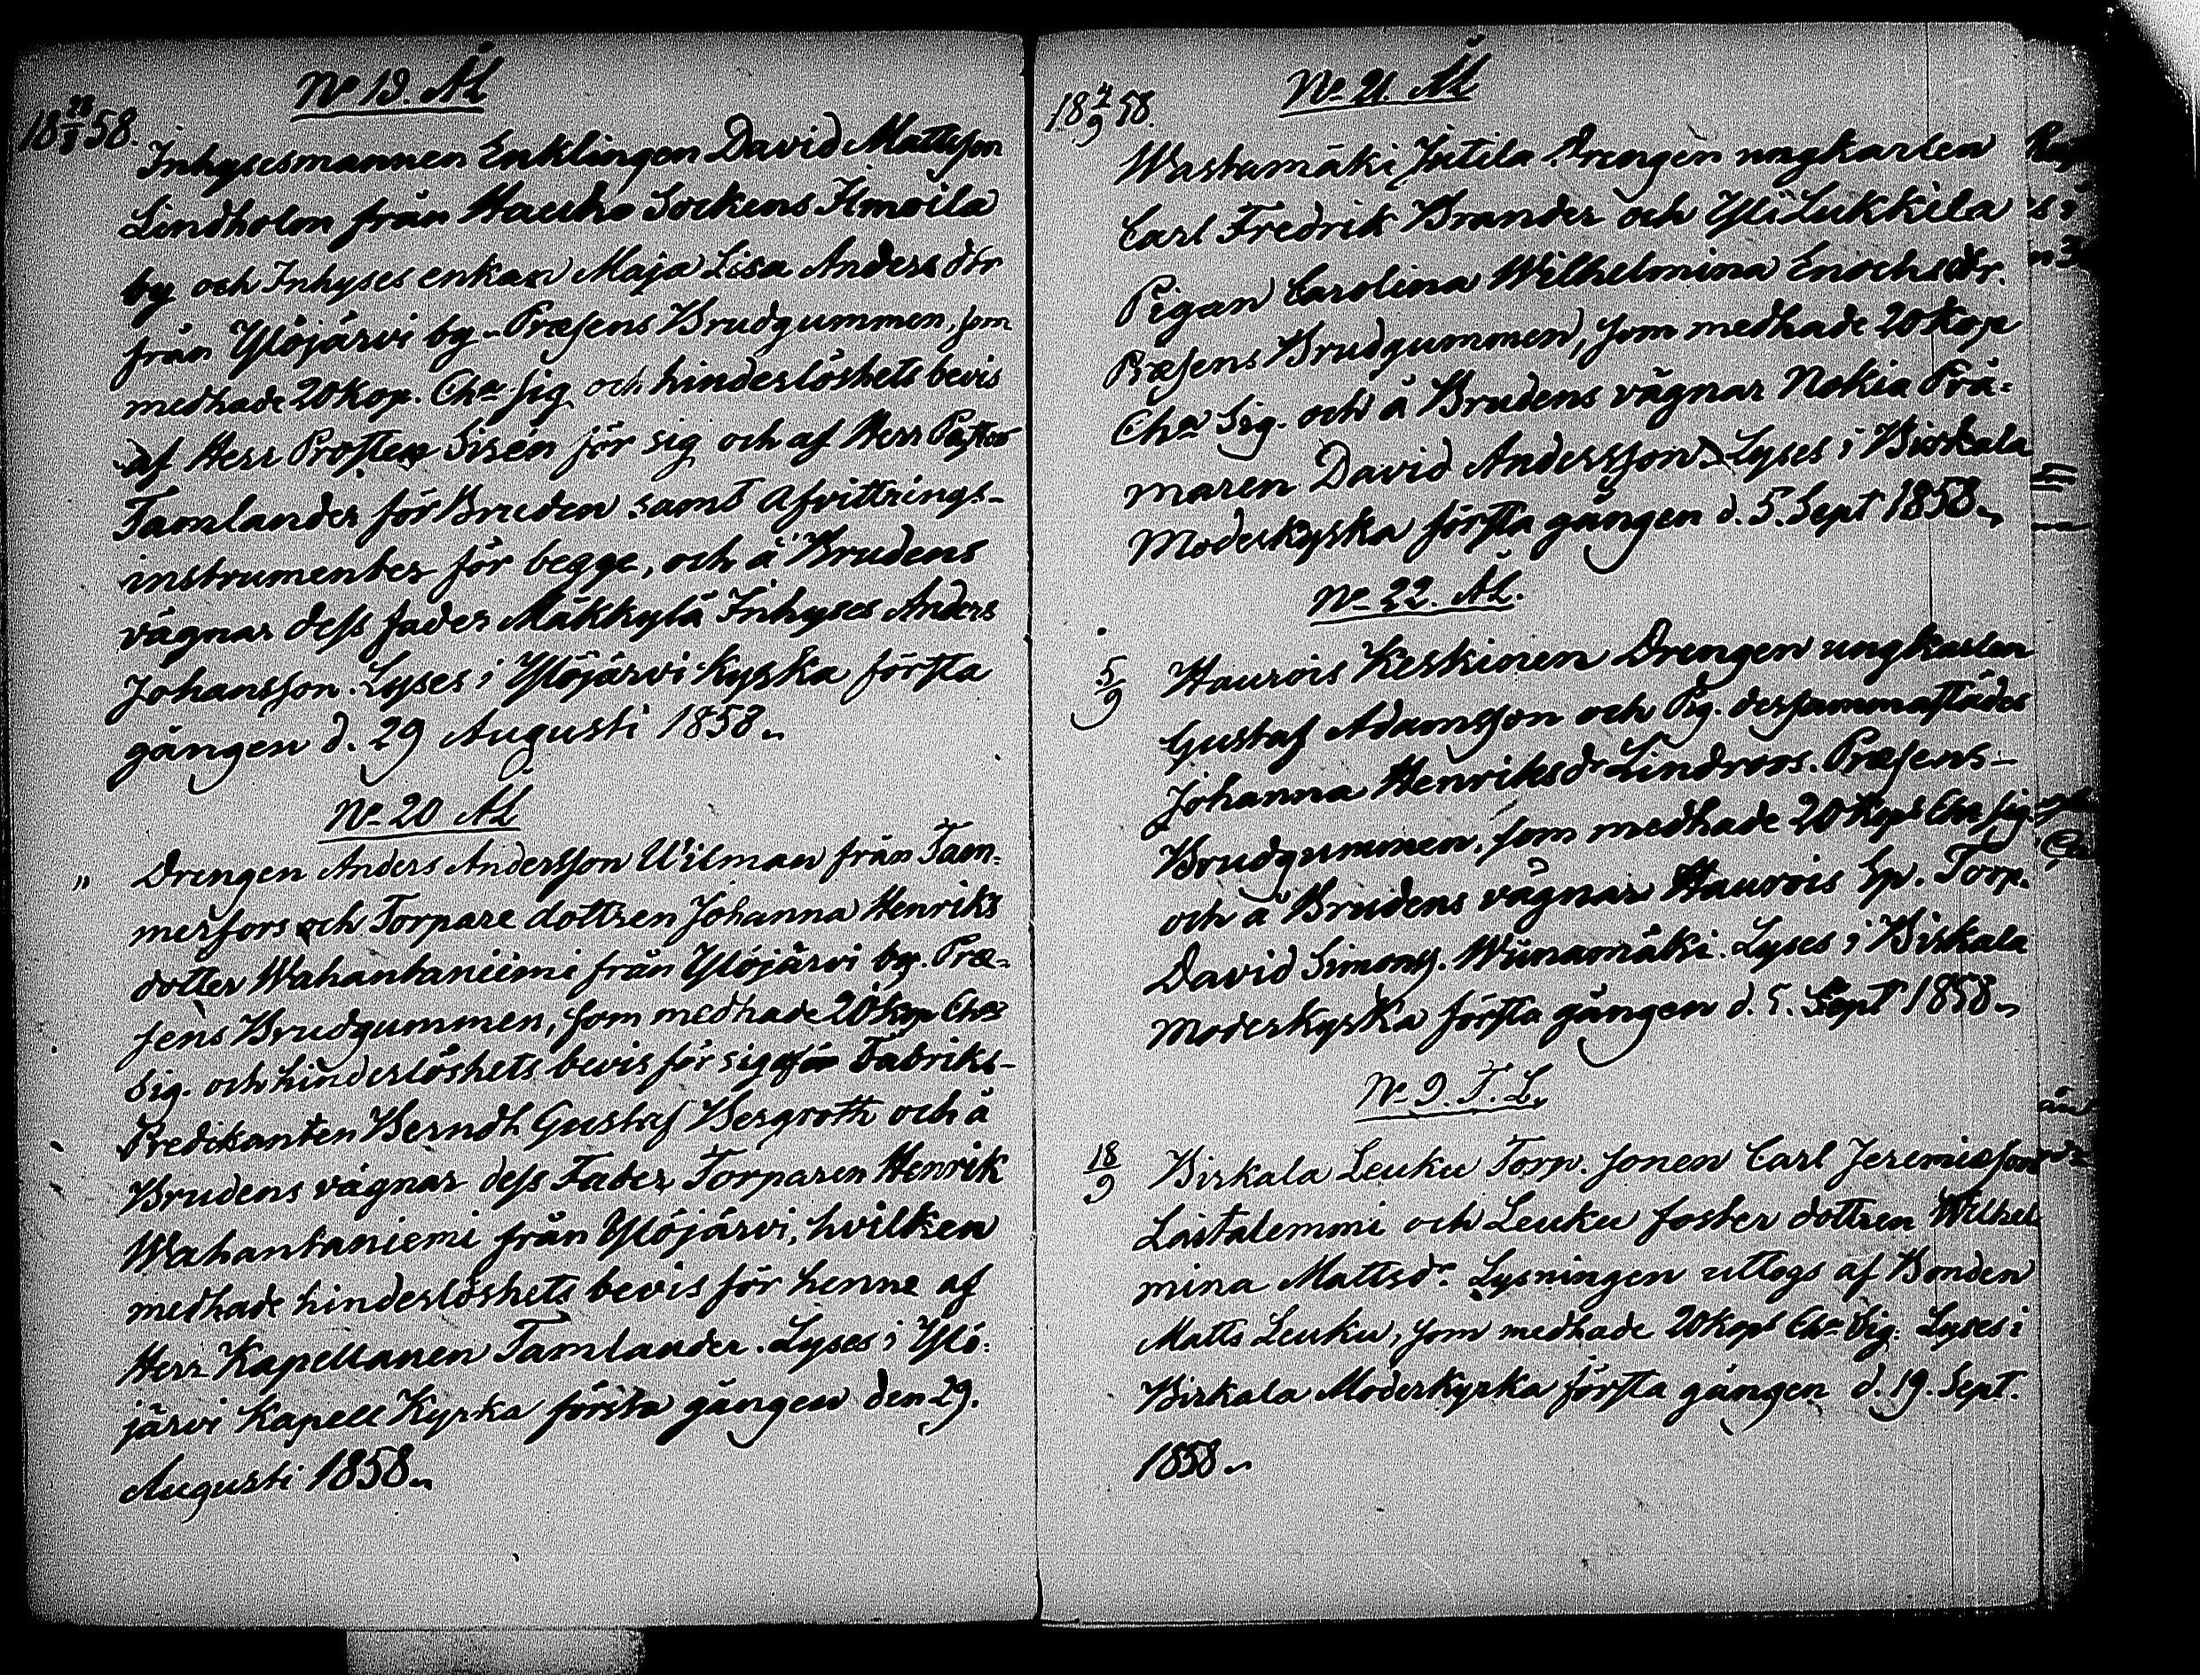 No 19. ÅL
18 28/8 58.
Inhysesmannen Enklingen David Mattsson
Lindholm från Hauho Sockens Ilmoila
by och Inhyses enkan Maja Lisa Andersdtr
från Ylöjärvi by. Præsens Brudgummen, som
medhade 20 Kop. Cha Sig och hinderlöshets bevis
af Herr Prosten Sirén för sig och af Herr Pastor
Tamlander för Bruden samt afvittrings-
instrumenter för begge, och å Brudens
vägnar dess fader Mäkkylä Inhyses Anders
Johansson. Lyses i Ylöjärvi Kyrka första
gången d. 29 Augusti 1858.
No 20 ÅL
" Drengen Anders Andersson Wilman från Tam-
merfors och Torpare dottren Johanna Henriks
dotter Wahantaniemi från Ylöjärvi by. Præ-
sens Brudgummen, som medhade 20 Kop Cha
Sig. och hinderlöshets bevis för sig från Fabriks-
Predikanten Berndt Gustaf Bergroth och å
Brudens vägnar dess Fader Torparen Henrik
Wahantaniemi från Ylöjärvi, hvilken
medhade hinderlöshets bevis för henne af
Herr Kapellanen Tamlander. Lyses i Ylö-
järvi Kapell Kyrka första gången den 29.
Augusti 1858.
No 21. ÅL
18 4/9 58.
Wastamäki Jutila Drengen ungkarlen
Carl Fredrik Brander och Yli Lukkila
Pigan Carolina Wilhelmina Enochsdr.
Præsens Brudgummen, som medhade 20 Kop
Cha Sig. och å Brudens vägnar Nokia Prå-
maren David Andersson. Lyses i Birkala
Moderkyrka första gången d. 5. Sept 1858.
No 22. ÅL.
5/9 Haurois Keskinen Drengen ungkarlen
Gustaf Adamsson och Pig. dersammastädes
Johanna Henriksdr Lindroos. Præsens
Brudgummen, som medhade 20 Kop Cha Sig.
och å Brudens vägnar Haurois Sp. Torp.
David Simons. Wiinamäki. Lyses i Birkala
Moderkyrka första gången d. 5. Sept 1858.
No 9. T. L.
18/9 Birkala Leuku Torp. sonen Carl Jeremiasson
Laitalemmi och Leuku foster dottren Wilhel
mina Mattsdr. Lysningen uttogs af Bonden
Matts Leuku, som medhade 20 Kop Cha Sig. Lyses i
Birkala Moderkyrka första gången d. 19. Sept.
1858.